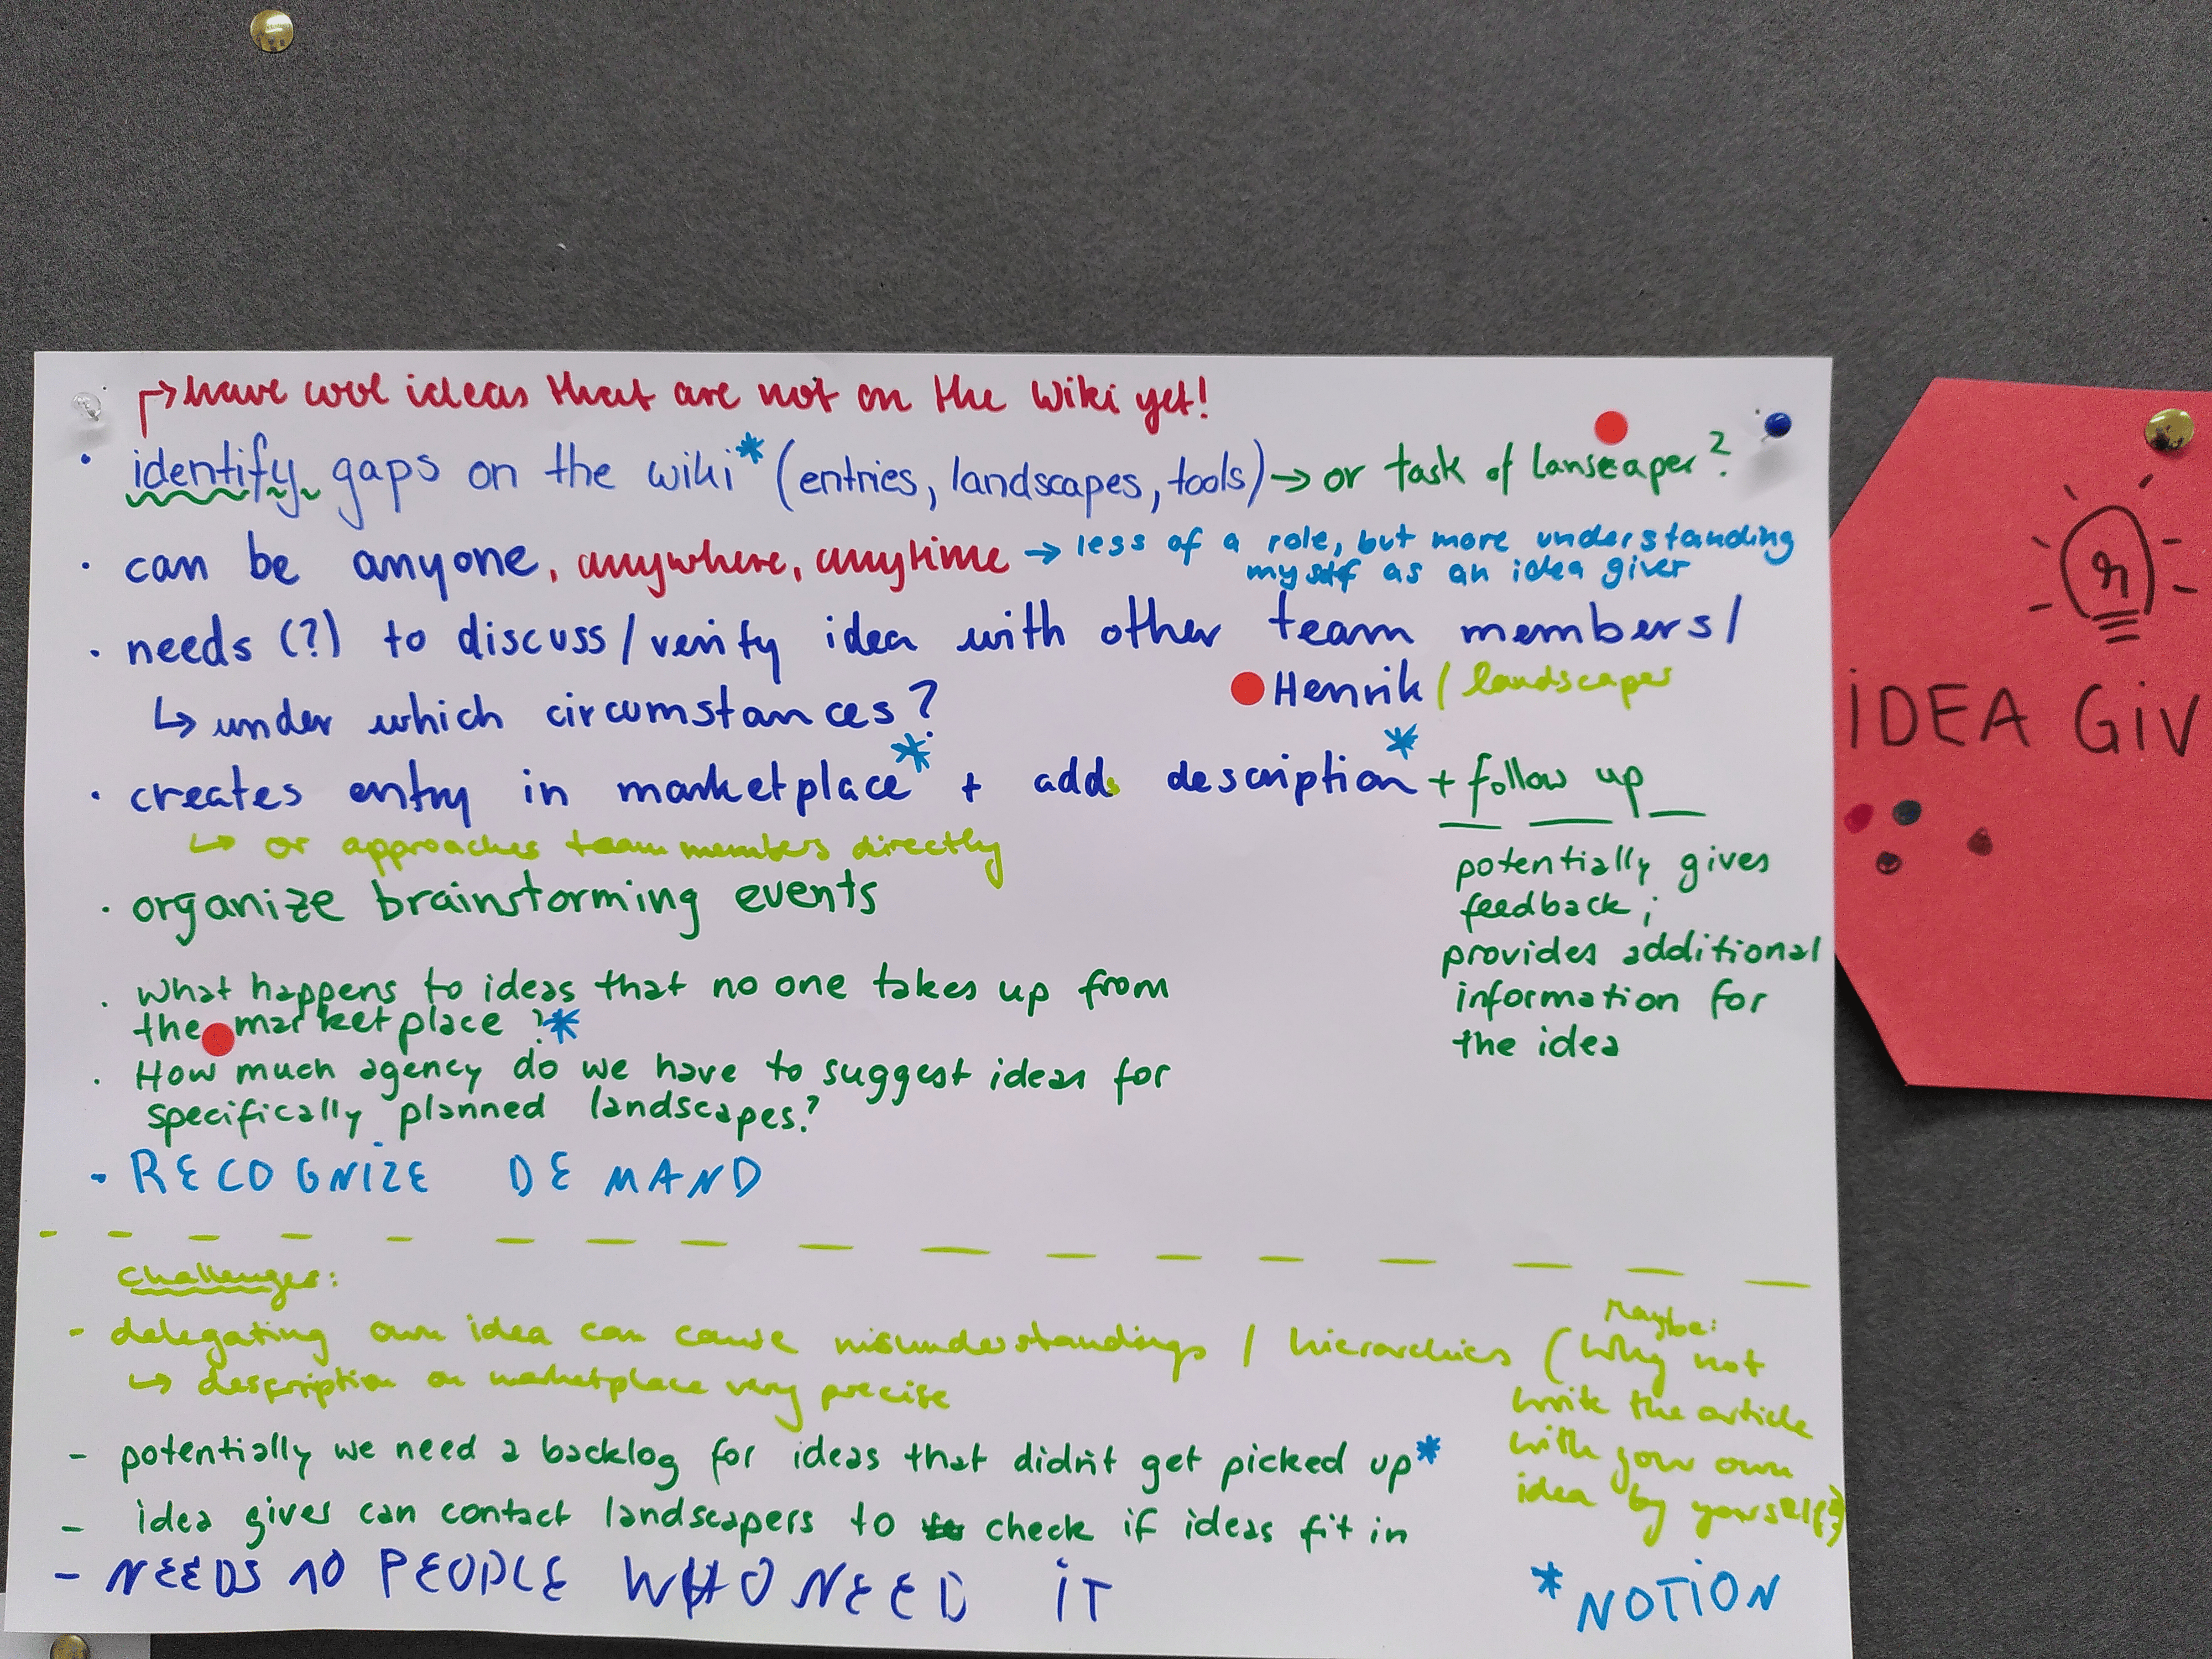 ↱ have cool ideas that are not on the wiki yet!
• identify gaps on the wiki* (entries, landscapes, tools) → or task of lanscaper?
• can be anyone, anywhere, anytime → less of a role, but more understanding
myself as an idea giver
• needs (?) to discuss / verify idea with other team members /
Henrik / landscaper
↳ under which circumstances?
• creates entry in marketplace* + adds description* + follow up
↳ or approaches team members directly
potentially gives
feedback;
provides additional
information for
the idea
• organize brainstorming events
• What happens to ideas that no one takes up from
the marketplace?*
• How much agency do we have to suggest ideas for
specifically planned landscapes?
- RECOGNIZE DEMAND
challenges:
- delegating own idea can cause misunderstandings / hierarchies
(Maybe:
Why not
write the article
with your own
idea by yourself?)
↳ description on marketplace very precise
- potentially we need a backlog for ideas that didn't get picked up*
- idea gives can contact landscapers to check if ideas fit in
- NEEDS 10 PEOPLE WHO NEED IT
* NOTION
IDEA GIV